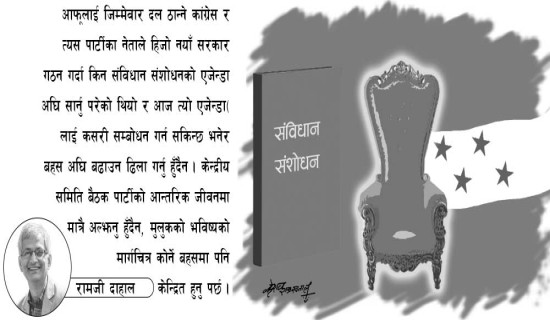 आफूलाई जिम्मेवार दल ठान्ने कांग्रेस र
त्यस पार्टीका नेताले हिजो नयाँ सरकार
गठन गर्दा किन संविधान संशोधनको एजेन्डा
अघि सार्नु परेको थियो र आज त्यो एजेन्डा(
लाई कसरी सम्बोधन गर्न सकिन्छ भनेर
बहस अघि बढाउन ढिला गर्नु हुँदैन । केन्द्रीय
समिति बैठक पार्टीको आन्तरिक जीवनमा
मात्रै अल्झनु हुँदैन, मुलुकको भविष्यको
मार्गचित्र कोर्ने बहसमा पनि
केन्द्रित हुनु पर्छ ।
रामजी दाहाल
संविधान
संशोधन